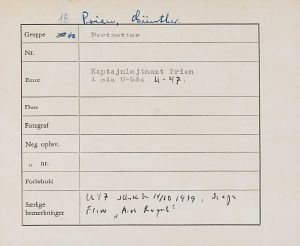 16 Prien, Günther.
Gruppe Portrætter
Nr.
Emne Kaptajnløjtnant Prien
i sin U-båd U-47.
Dato
Fotograf
Neg. opbev.
„ nr.
Forbehold
Særlige bemærkninger U 47 14/10 1939,
Film „